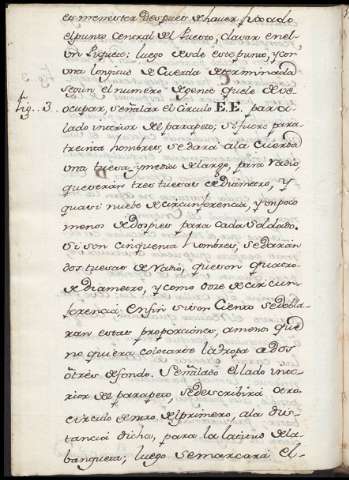 es menester despues de haver fixado
el punto central del fuerte, clavar en el
un piquete; luego desde este punto, y con
una longitud de Cuerda determinada
segun el numero de gente que le deve
fig. 3. ocupar, señalar el circulo E.E. para el
lado interior del parapeto; si fuere para
treinta hombres, se dará a la Cuerda
una tuesa y media de largo, para radio,
que serán tres tuesas de Diametro, y
quasi nueve de circunferencia, y un poco
menos de dos pies para cada Soldado.
Si son cinquenta hombres, se darán
dos tuesas de radio, que son quatro
de diametro, y como once de circun-
ferencia; en fin si son Ciento se dobla-
ran estas proporciones, a menos que
no quiera colocarse la tropa a dos
ò tres de fondo. Señalado el lado inte-
rior del parapeto, se describirá otro
circulo dentro del primero, a la dis-
tancia dicha, para la latitud de la
banqueta; luego se marcará el-